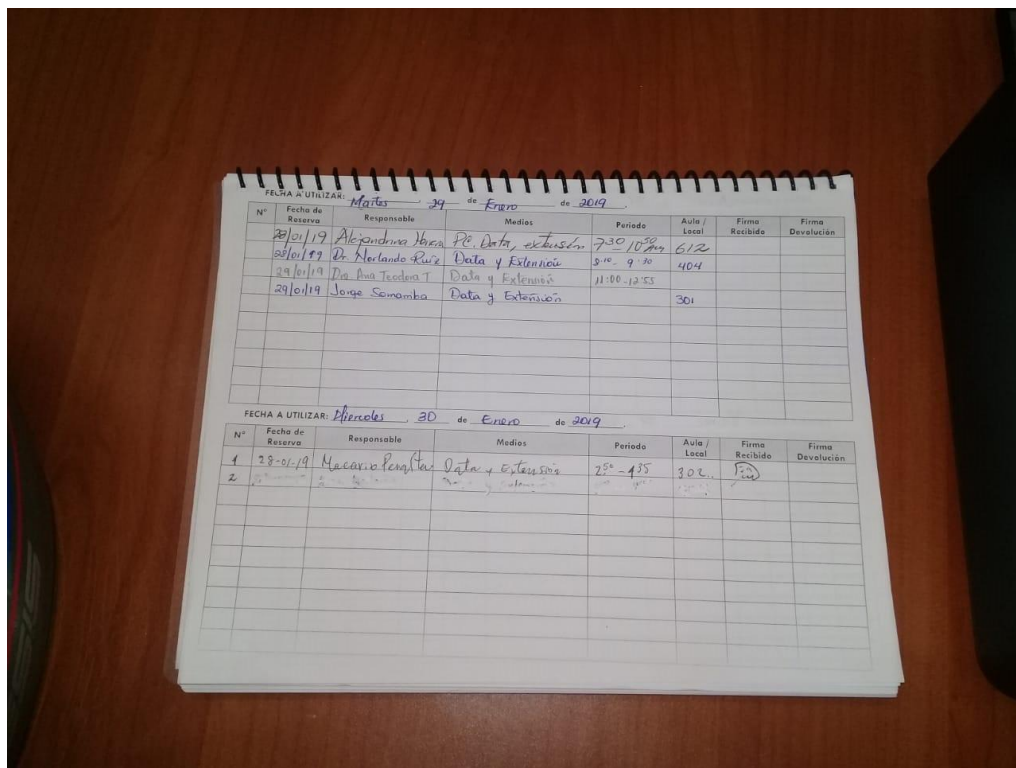 FECHA A UTILIZAR: Martes 29 de Enero de 2019
N° Fecha de Reserva Responsable Medios Periodo Aula / Local Firma Recibido Firma Devolución
28/01/19 Alejandrina PC, Data, extensión 7:30 - 10:50 612
28/01/19 Dr. Norlando Ruiz Data y Extensión 8:10 - 9:50 404
29/01/19 Dra Ana Teodora T Data y Extensión 11:00-12:55
29/01/19 Jorge Samamba Data y Extensión 301
FECHA A UTILIZAR: Miercoles, 30 de Enero de 2019
N° Fecha de Reserva Responsable Medios Periodo Aula / Local Firma Recibido Firma Devolución
1 28-01-19 Macario Peralta Data y Extensión 2:50 - 4:35 302
2